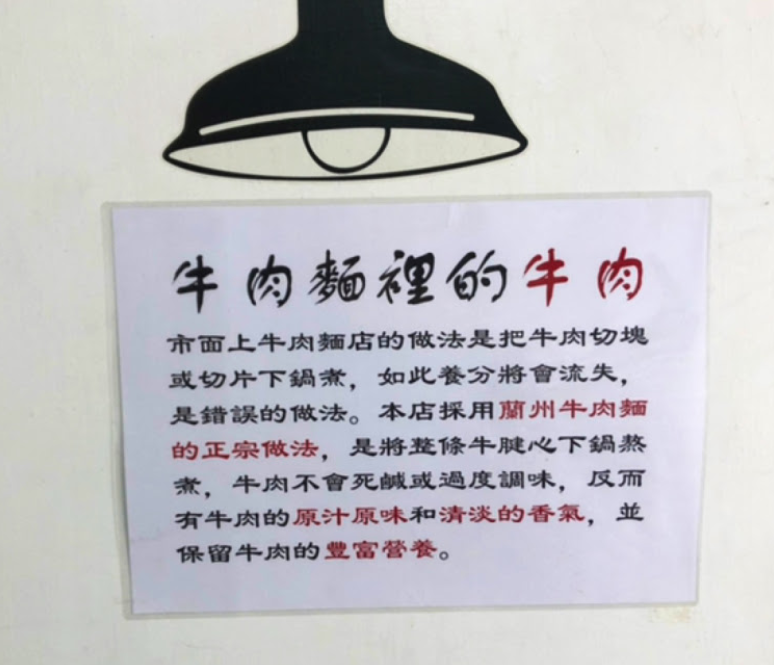 牛肉麵裡的牛肉
市面上牛肉麵店的做法是把牛肉切塊
或切片下鍋煮，如此養分將會流失，
是錯誤的做法。本店採用蘭州牛肉麵
的正宗做法，是將整條牛腱心下鍋熬
煮，牛肉不會死鹹或過度調味，反而
有牛肉的原汁原味和清淡的香氣，並
保留牛肉的豐富營養。